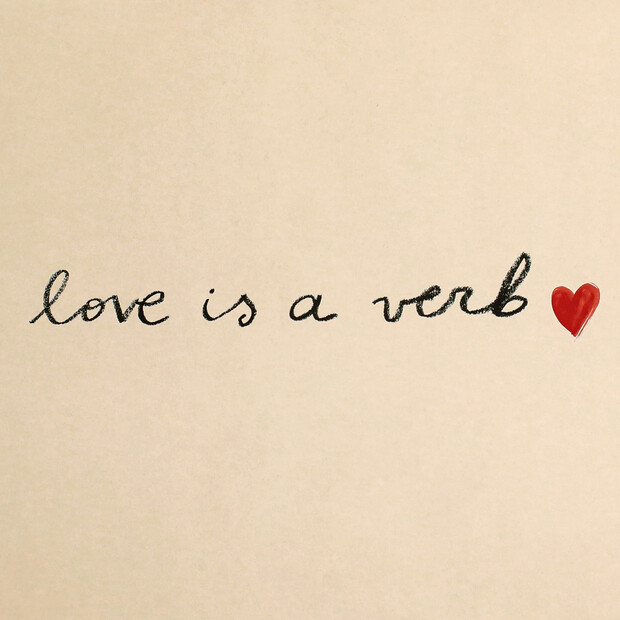 love is a verb